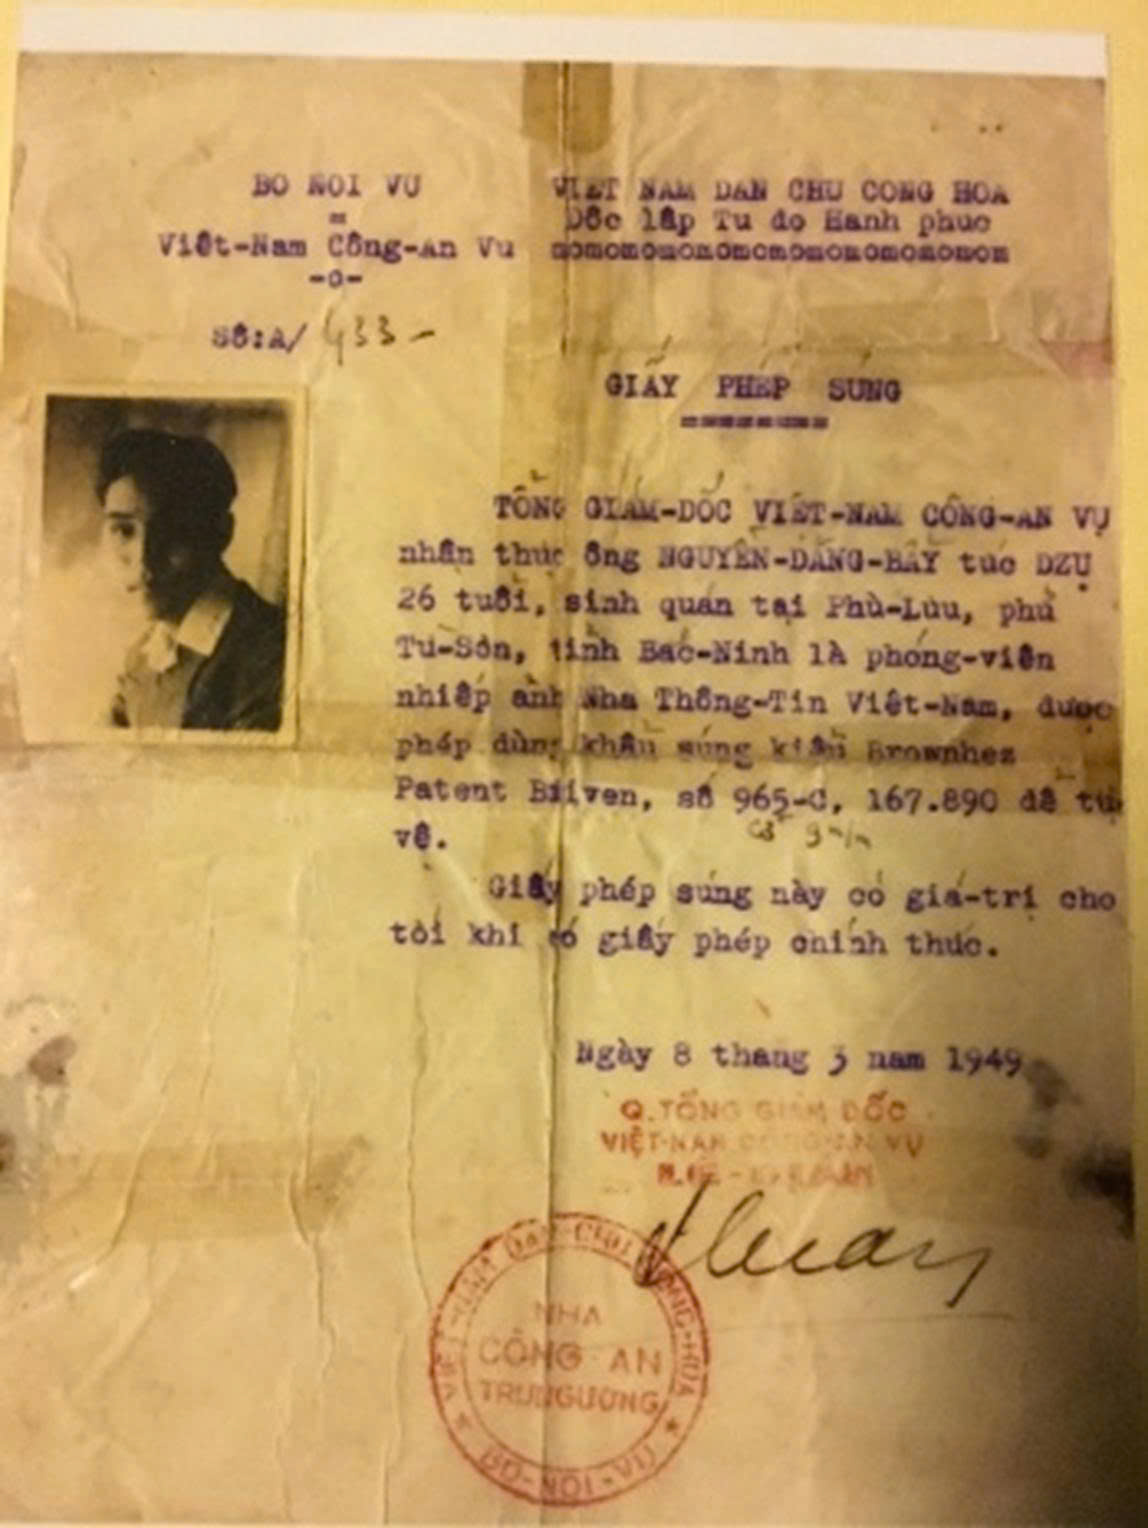 BO NOI VU
=
Viêt-Nam Công-An Vu
-o-
Số:A/ 433-
VIET NAM DAN CHU CONG HOA
Dôc lâp Tu do Hanh phuc
GIẤY PHÉP SÚNG
TỔNG GIÁM-DỐC VIỆT-NAM CÔNG-AN VỤ
nhân thuc ông NGUYỄN-DĂNG-BẨY tuc DZỤ
26 tuổi, sinh quán tại Phù-Lưu, phủ
Tù-Sơn, tỉnh Bac-Ninh là phóng-viên
nhiếp ảnh Nha Thông-Tin Việt-Nam, được
phép dùng khẩu súng kiểu Brownhez
Patent số 965-C, 167.890 dể tự
vệ.
9 m/m
Giấy phép súng này có giá-trị cho
tới khi có giấy phép chính thức.
Ngày 8 thang 3 nam 1949
Q.TỔNG GIÁM ĐỐC
VIỆT-NAM CÔNG-AN VỤ
VIỆT-NAM DÂN-CHỦ CỘNG-HÒA
NHA
CÔNG AN
TRUNG ƯƠNG
BỘ-NỘI-VỤ